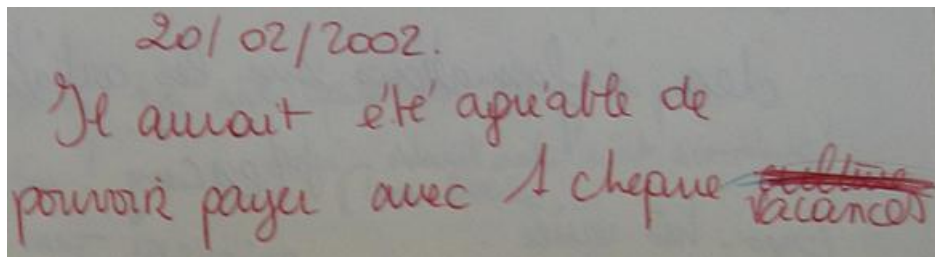 20/02/2002.
Il aurait été agréable de
pouvoir payer avec 1 cheque vacances